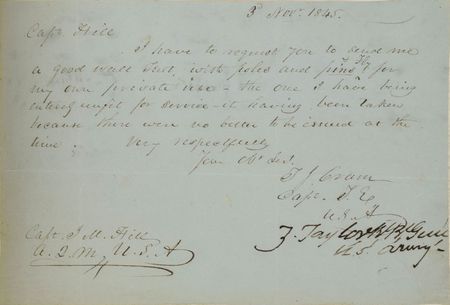 3d Novr. 1845.
Capt. Hill
I have to request you to send me
a good wall tent, with poles and pins & Fly for
my own private use - the one I have being
entirely unfit for service - it having been taken
because there were no better to be issued at the
time. Very respectfully
Your Obt. Sert.
T J Cram
Capt. T. E.
U. S. A
Capt. J. M. Hill
A. Q. M. U. S. A
Z. Taylor Bt. B. Genl
U.S. Army -